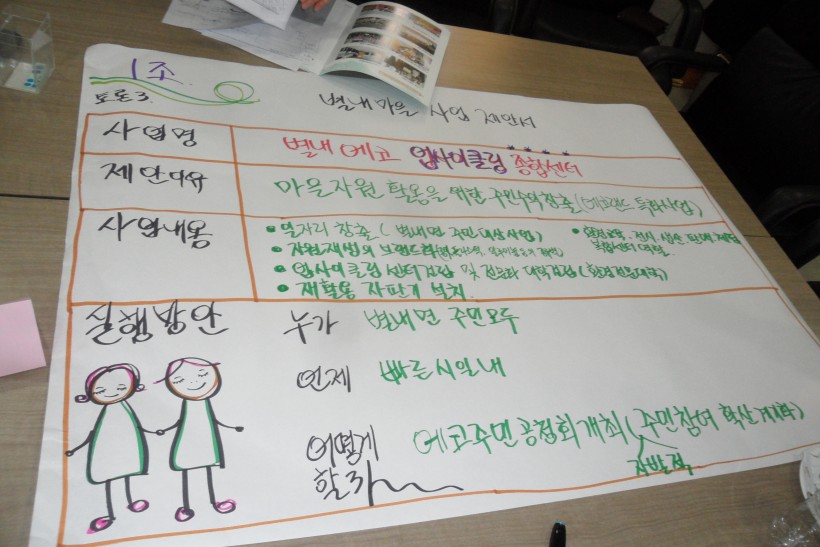 1조
토론3.
별내마을 사업 제안서
사업명 별내 에코 업사이클링 종합센터
제안이유 마을자원 활용을 위한 주민수익창출(에코랜드 특화사업)
사업내용
• 일자리 창출 ( 별내면 주민대상사업)
• 자원재생의 브랜드화
• 업사이클링 센터건립 및 전문화 대학건립 (환경전문대학)
• 재활용 자판기 설치.
• 환경교육, 전시, 생산, 판매, 체험
복합센터
실행방안
누가 별내면 주민모두
언제 빠른시일내
어떻게 할까 에코주민공청회개최( 주민참여 확산 계획)
자발적